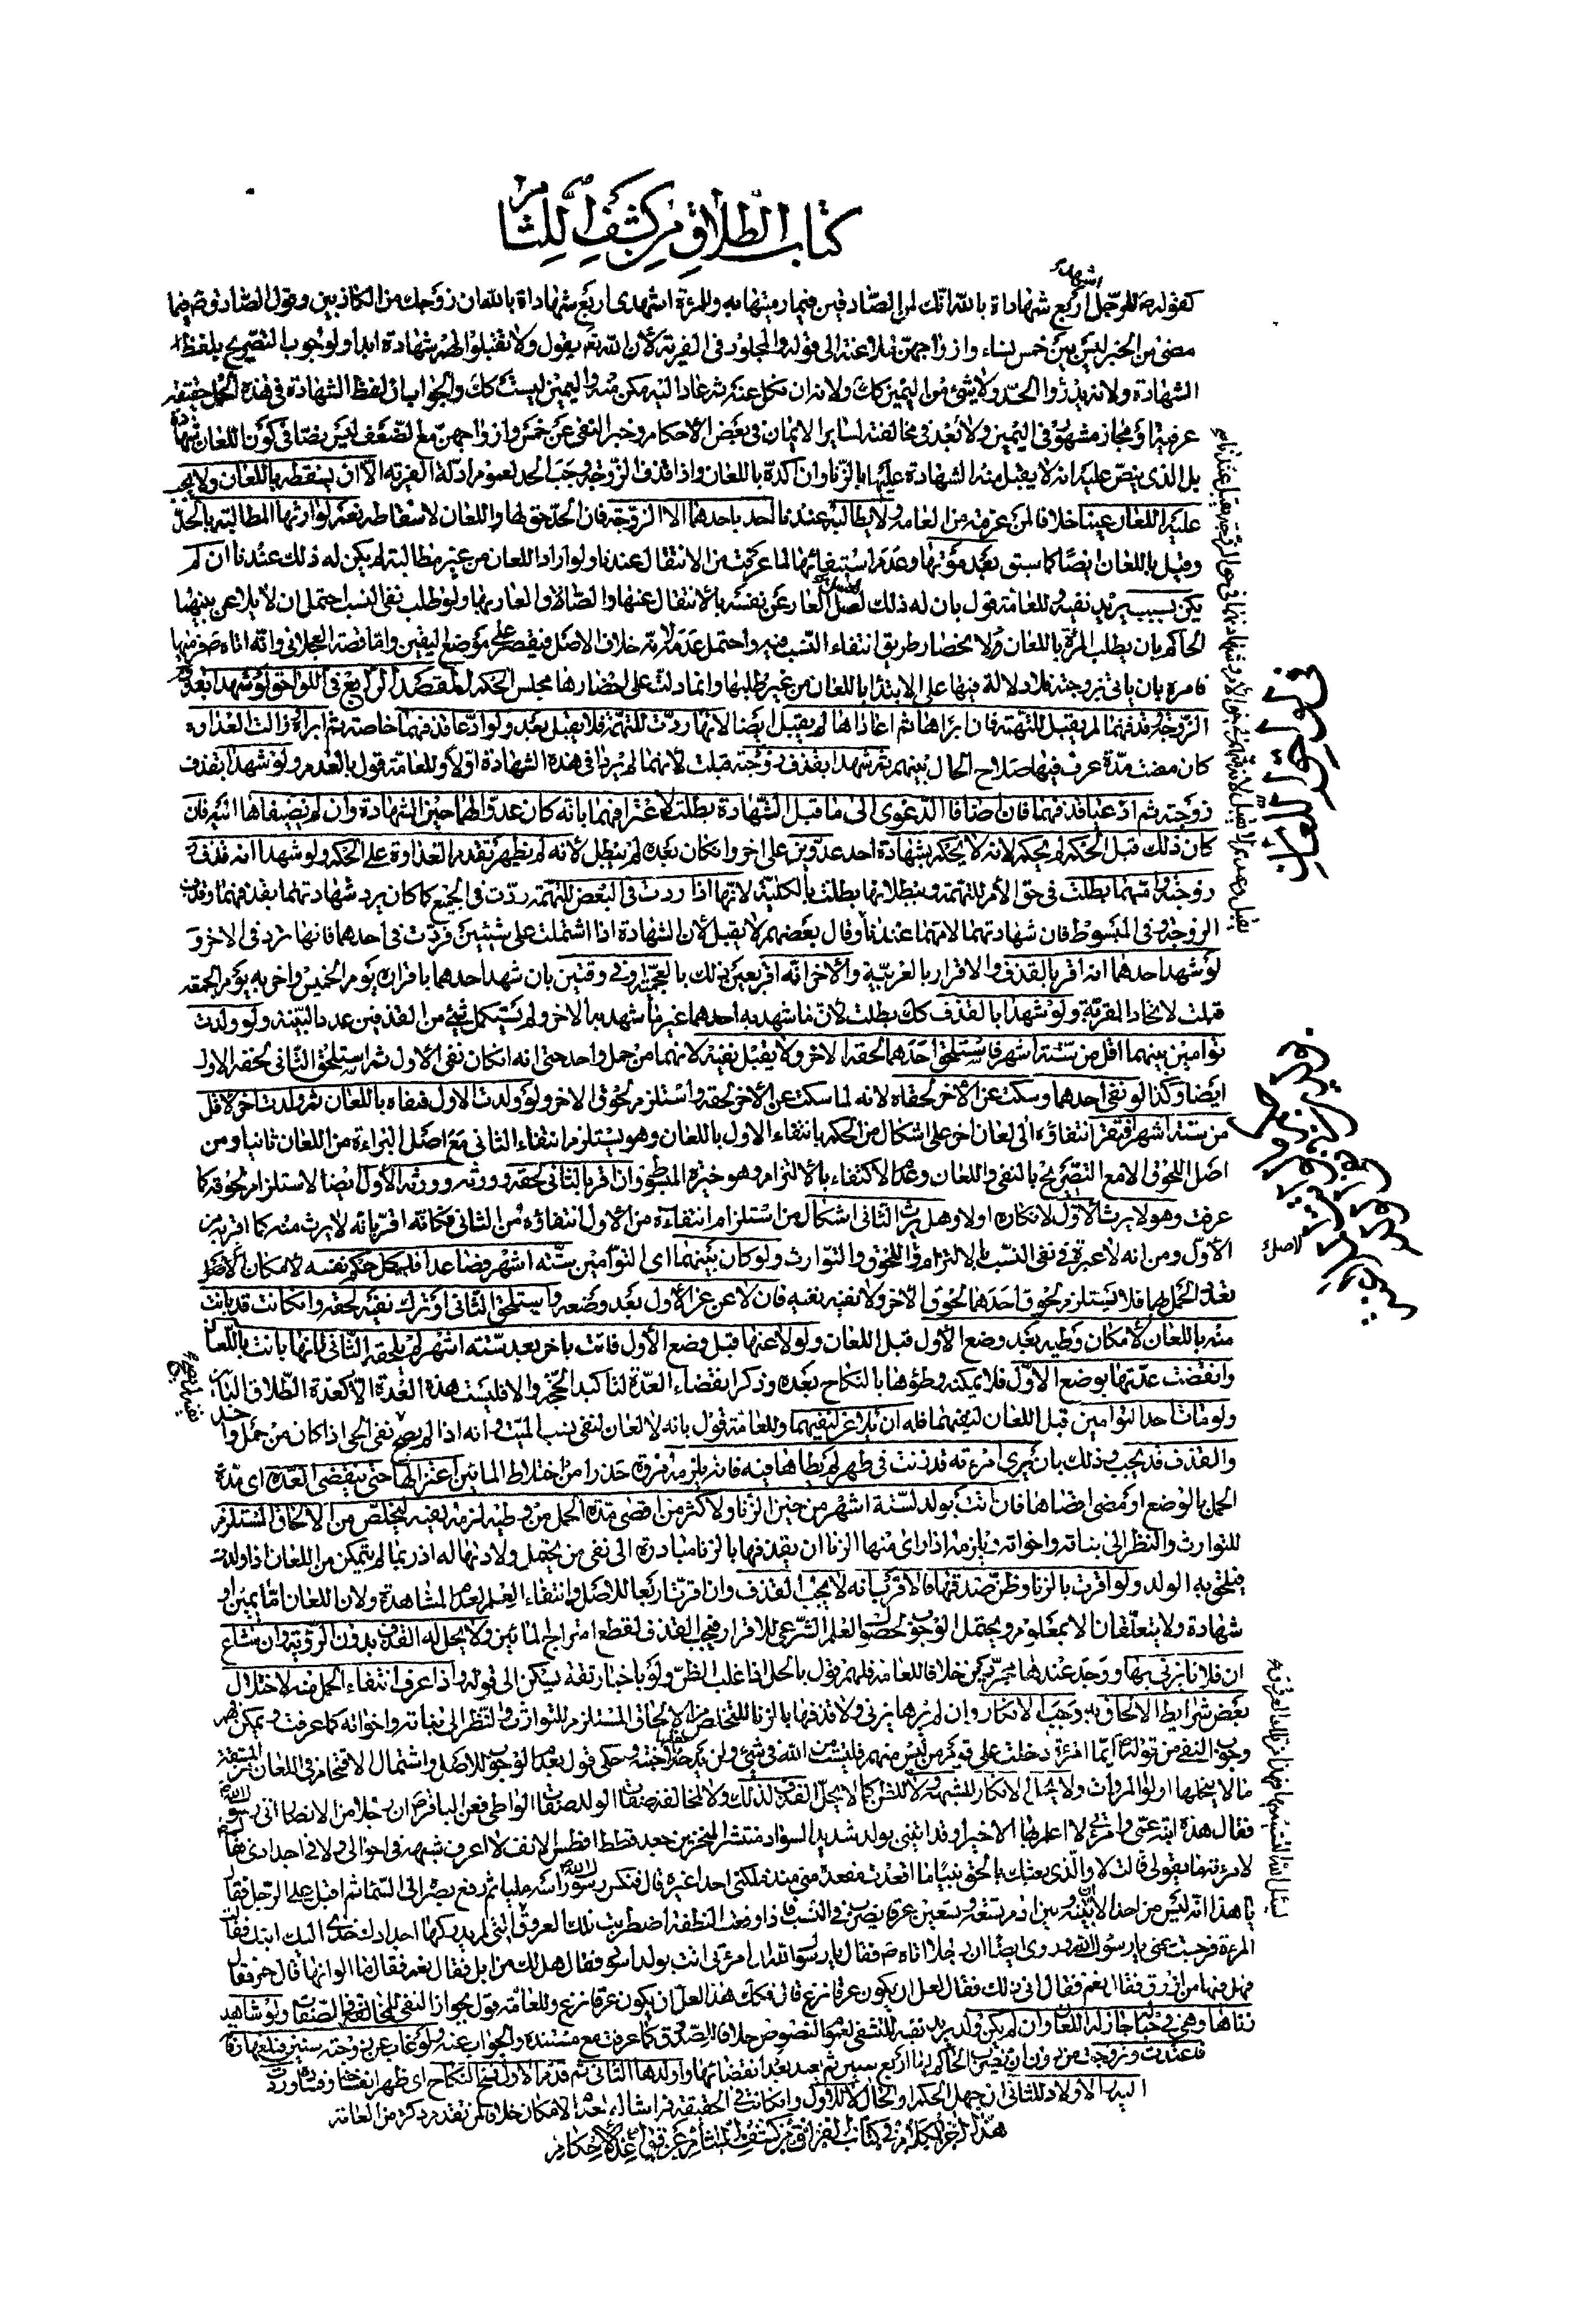 كتاب الطلاق من كشف اللثام
كقوله ص للرجل اشهد اربع شهادات بالله انك لمن الصادقين فيما رميتها به وللمرأة اشهدى اربع شهادات بالله ان زوجك من الكاذبين وقول الصادق ص فيما
مضى من الخبر ليس بين خمس نساء وازواجهن ملاعنة الى قوله والمجلود فى الفرية لان الله تعالى يقول ولا تقبلوا لهم شهادة ابدا ولوجوب التصريح بلفظ
الشهادة ولانه يدرؤا الحد ولا شئ من اليمين كك ولانه ان نكل عنه ثم عاد اليه مكن منه واليمين ليست كك والجواب ان لفظ الشهادة فى هذه الجمل حقيقة
عرفية او مجاز مشهور فى اليمين ولا بعد فى مخالفته لساير الايمان فى بعض الاحكام وخبر النفى عن خمس وازواجهن مع الضعف ليس نصا فى كون اللعان شهادة
بل الذى ينص عليه انه لا يقبل منه الشهادة عليها بالزنا وان اكده باللعان واذا قذف الزوجة وجب الحد لعموم ادلة الفرية الا ان يسقطه باللعان ولا يجب
عليه اللعان عينا خلافا لمن عرفته من العامة ولا يطالبه عندنا احد باحدهما الا الزوجة فان الحد حق لها واللعان لاسقاطه نعم لوارثها المطالبة بالحد
وقيل باللعان ايضا كما سبق بعد موتها وعدم استيفائها لما عرفت من الانتقال عندنا ولو اراد اللعان من غير مطالبة لم يكن له ذلك عندنا ان لم
يكن نسب يريد نفيه وللعامة قول بان له ذلك
الحاكم بان يطلب المرأة باللعان
فامره بان ياتى بزوجته فلا دلالة فيها على الابتداء باللعان من غير طلبها وانما دلت على احضارها مجلس الحكم المقصد الرابع فى اللواحق لو شهدا بقذف
الزوجة وقذفهما لم يقبل للتهمة فان ابراها ثم اعاداها لم يقبل ايضا لانها ردت للتهمة فلا يقبل بعد ولو ادعا قذفهما خاصة ثم ابراه وزالت العداوة
كان مضت مدة عرف فيها صلاح الحال بينهم ثم شهدا بقذف زوجته قبلت لانهما لم يردا فى هذه الشهادة اولا وللعامة قول بالعدم ولو شهدا بقذف
زوجته ثم ادعيا قذفهما فان اضافا الدعوى الى ما قبل الشهادة بطلت لاعترافهما بانه كان عدوا لهما حين الشهادة وان لم يضيفاها اليه فان
كان ذلك قبل الحكم لم يحكم لانه لا يحكم بشهادة احد عدوين على اخر وان كان بعده لم يبطل لانه لم يظهر تقدم العداوة على الحكم ولو شهدا انه قذف
زوجته وامهما بطلت فى حق الام للتهمة وببطلانها بطلت بالكلية لانها اذا ردت فى البعض للتهمة ردت فى الجميع كما كان يرد شهادتهما بقذفهما وقذف
الزوجة وفى المبسوط فان شهادتهما لامهما عندنا وقال بعضهم لا يقبل لان الشهادة اذا اشتملت على شيئين فردت فى احدهما فانها ترد فى الاخر و
لو شهد احدهما انه اقر بالقذف والاقرار بالعربية والاخر انه اقر بعين ذلك بالعجمية او فى وقتين بان شهد احدهما باقراره يوم الخميس واخر به يوم الجمعة
قبلت لاتحاد المقر به ولو شهدا بالقذف كك بطلت لان ما شهد به احدهما غير ما شهد به الاخر ولم يستكمل شئ من القذفين عدد البينة ولو ولدت
توامين بينهما اقل من ستة اشهر فاستلحق احدهما لحقه الاخر ولا يقبل نفيه لانهما من حمل واحد حتى انه ان كان نفى الاول ثم استلحق الثانى لحقه الاول
ايضا وكذا لو نفى احدهما وسكت عن الاخر لحقاه لانه لما سكت عن الاخر لحقه واستلزم لحوق الاخر ولو ولدت الاول فنفاه باللعان ثم ولدت اخر لاقل
من ستة اشهر ففى افتقار انتفاؤه الى لعان اخر على اشكال من الحكم بانتفاء الاول باللعان وهو يستلزم انتفاء الثانى مع اصل البراءة من اللعان ثانيا ومن
اصل اللحوق الا مع التصريح بالنفى واللعان وعدم الاكتفاء بالالتزام وهو خيرة المبسوط وان اقر بالثانى لحقه وورثه وورثه الاول ايضا لاستلزام لحوقه كما
عرفت وهو لا يرث الاول لانكاره اولا وهل يرث الثانى اشكال من استلزام انتفاءه من الاول انتفاؤه من الثانى فكانه اقر بانه لا يرث منه كما اقر به من
الاول ومن انه لا عبرة فى نفى النسب بالالتزام والاصل اللحوق والتوارث ولو كان بينهما اى التوامين ستة اشهر فصاعدا فلكل حكم نفسه لامكان
تعدد الحمل لهما فلا يستلزم لحوق احدهما لحوق الاخر ولا نفيه نفيه فان لاعن عن الاول بعد وضعه واستلحق الثانى او ترك نفيه لحقه وان كانت قد بانت
منه باللعان لامكان وطيه بعد وضع الاول قبل اللعان ولو لاعنها قبل وضع الاول فاتت باخر بعد ستة اشهر لم يلحقه الثانى لانها بانت باللعان
وانقضت عدتها بوضع الاول فلا يمكنه وطؤها بالنكاح بعده وذكر انقضاء العدة لتاكيد الحجة والا فليست هذه العدة الا كعدة الطلاق البائن
ولو مات احد التوامين قبل اللعان لنفيهما فله ان يلاعن لنفيهما وللعامة قول بانه لا لعان لنفى نسب الميت وانه اذا لم يصح نفى الحى اذا كان من حمل واحد
والقذف قد يجب وذلك بان يرى امرأته قد زنت فى طهر لم يطاها فيه فانه يلزمه حذرا من اختلاط المائين اعتزالها حتى ينقضى العدة اى مدة
الحمل بالوضع او مضى اقصاها فان اتت بولد لستة اشهر من حين الزنا ولاكثر من اقصى مدة الحمل من وطيه لزمه نفيه ليتخلص من الالحاق المستلزم
للتوارث والنظر الى بناته واخواته ويلزمه اذا راى منها الزنا ان يقذفها بالزنا مبادرة الى نفى من يحتمل ولادتها له اذ ربما لم يتمكن من اللعان اذا ولدت
فيلحق به الولد ولو اقرت بالزنا وظن صدقها فالاقرب انه لا يجب القذف وان اقرت اربعا للاصل وانتفاء العلم لعدم المشاهدة ولان اللعان اما يمين او
شهادة ولا يتعلقان الا بمعلوم ويحتمل الوجوب لحصول العلم الشرعى للاقرار فيجب القذف لقطع امتزاج المائين ولا يحل له القذف بدون الرؤية وان شاع
ان فلانا يزنى بها ووجد عندها مجردين خلافا للعامة فلهم قول بالحل اذا غلب الظن ولو باخبار ثقة يسكن الى قوله واذا عرف انتفاء الحمل منه لاختلال
بعض شرايط الالحاق به وجب الانكار وان لم يرها يزنى ولا قذفها بالزنا للتخلص من الالحاق المستلزم للتوارث والنظر الى بناته واخواته كما عرفت ويمكن فهم
وجوب النفى من قوله ص ايما امرأة دخلت على قوم من ليس منهم فليست من الله فى شئ ولن يدخلها جنته وحكى قول بعدم الوجوب للاصل واشتمال الاقتحام فى اللعان المشقة
ما لا يتحملها اولوا المروات ولا يحل الانكار للشبهة ولا للظن كما لا يحل القذف لذلك ولا لمخالفة صفات الولد صفات الواطى فعن الباقر ع ان رجلا من الانصار اتى رسول الله ص
فقال هذه ابنة عمى وامرأتى لا اعلم الا خيرا وقد اتتنى بولد شديد السواد منتشر المنخرين جعد قطط افطس الانف لا اعرف شبهه فى اخوالى ولا فى اجدادى فقال
لامرأته ما تقولى قالت لا والذى بعثك بالحق نبيا ما اقعدت مقعده منى منذ ملكنى احدا غيره قال فنكس رسول الله ص راسه مليا ثم رفع بصره الى السماء ثم اقبل على الرجل فقال
يا هذا انه ليس من احد الا بينه وبين ادم تسعة وتسعين عرقا يضرب فى النسب فاذا وقعت النطفة اضطربت تلك العروق التى لم يدركها اجدادك خذى اليك ابنك فقالت
المرأة فرجت عنى يا رسول الله وروى ايضا ان رجلا اتاه ص فقال يا رسول الله ان امرأتى اتت بولد اسود فقال هل لك من ابل فقال نعم فقال ما الوانها قال حمر فقال
فهل فيها من اورق فقال نعم فقال انى ذلك فقال لعل ان يكون عرقا نزع قال فكك هذا لعل ان يكون عرقا نزع وللعامة قول بجواز النفى للمخالفة فى الصفات ولو شاهد
زناها وهى فى حباله جاز له اللعان وان لم يكن ولد يريد نفيه للتشفى لعموم النصوص خلافا للصدوق كما عرفت مع مستنده والجواب عنه ولو غاب عن زوجته سنتين فبلغها وفاته
فاعتدت وتزوجت من دون ان يضرب الحاكم لها اربع سنين ثم يعتد بعد انقضائها واولدها الثانى ثم قدم الاول فسخ النكاح اى ظهر انفساخه وفساده وردت
اليه والاولاد للثانى ان جهل الحكم او الحال لا للاول وان كانت فى الحقيقة فراشا له لعدم الامكان خلافا لمن تقدم ذكره من العامة
هذا اخر الكلام فى كتاب الفراق من كشف اللثام عن قواعد الاحكام
فى لواحق اللعان